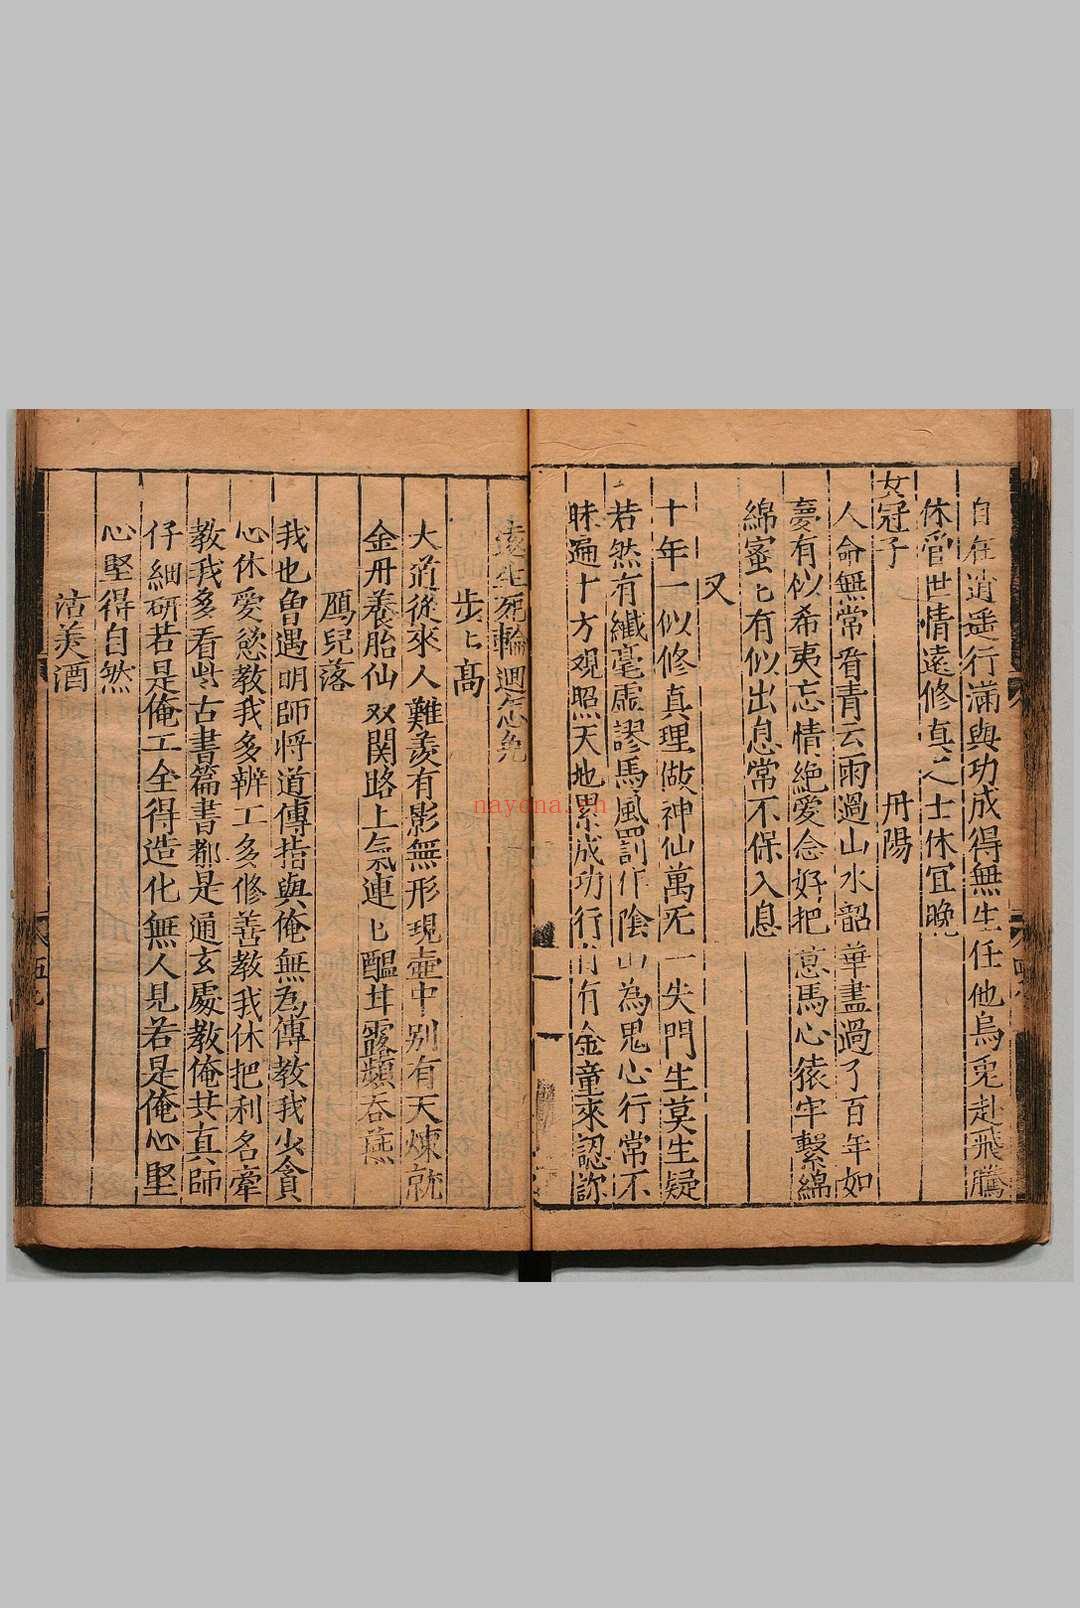 自在逍遥行滿與功成得無生任他烏兎赴飛騰
休管世情遠修真之士休宜晚
女冠子 丹陽
人命無常看青云雨過山水韶華盡過了百年如
憂有似希夷忘情絶愛念好把意馬心猿牢繫綿
綿蜜匕有似出息常不保入息
又
十年一似修真理做神仙萬无一失門生莫生疑
若然有纖毫虚謬馬風罰作陰山為鬼心行常不
昧遍十方觀照天地累成功行 有金童來認你
遠生死輪迴怎免
步匕髙
大道從來人難羡有影無形現壷中别有天煉就
金丹養胎仙双関路上氣連匕醖甘露頻吞嚥
鴈兒落
我也曽遇明師将道傳指與俺無為傳教我少貪
心休愛慾教我多辨工多修善教我休把利名牽
教我多看些古書篇書都是通玄處教俺共真師
仔細研若是俺工全得造化無人見若是俺心堅
心堅得自然
沽美酒
nayona.cn